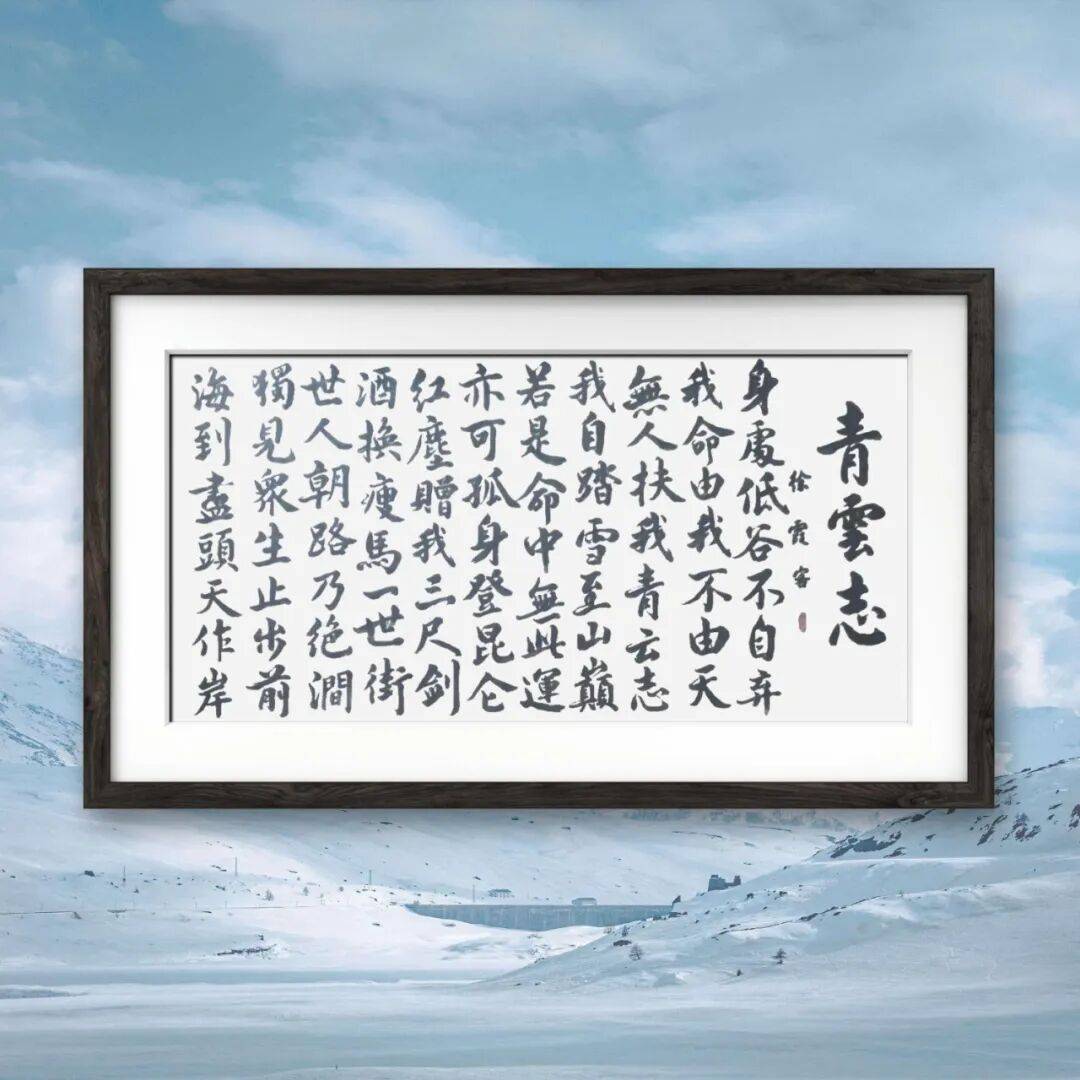 青雲志
徐霞客
身處低谷不自弃
我命由我不由天
無人扶我青云志
我自踏雪至山巔
若是命中無此運
亦可孤身登昆仑
红塵贈我三尺劍
酒換瘦馬一世街
世人朝路乃绝澗
獨見衆生止步前
海到盡頭天作岸